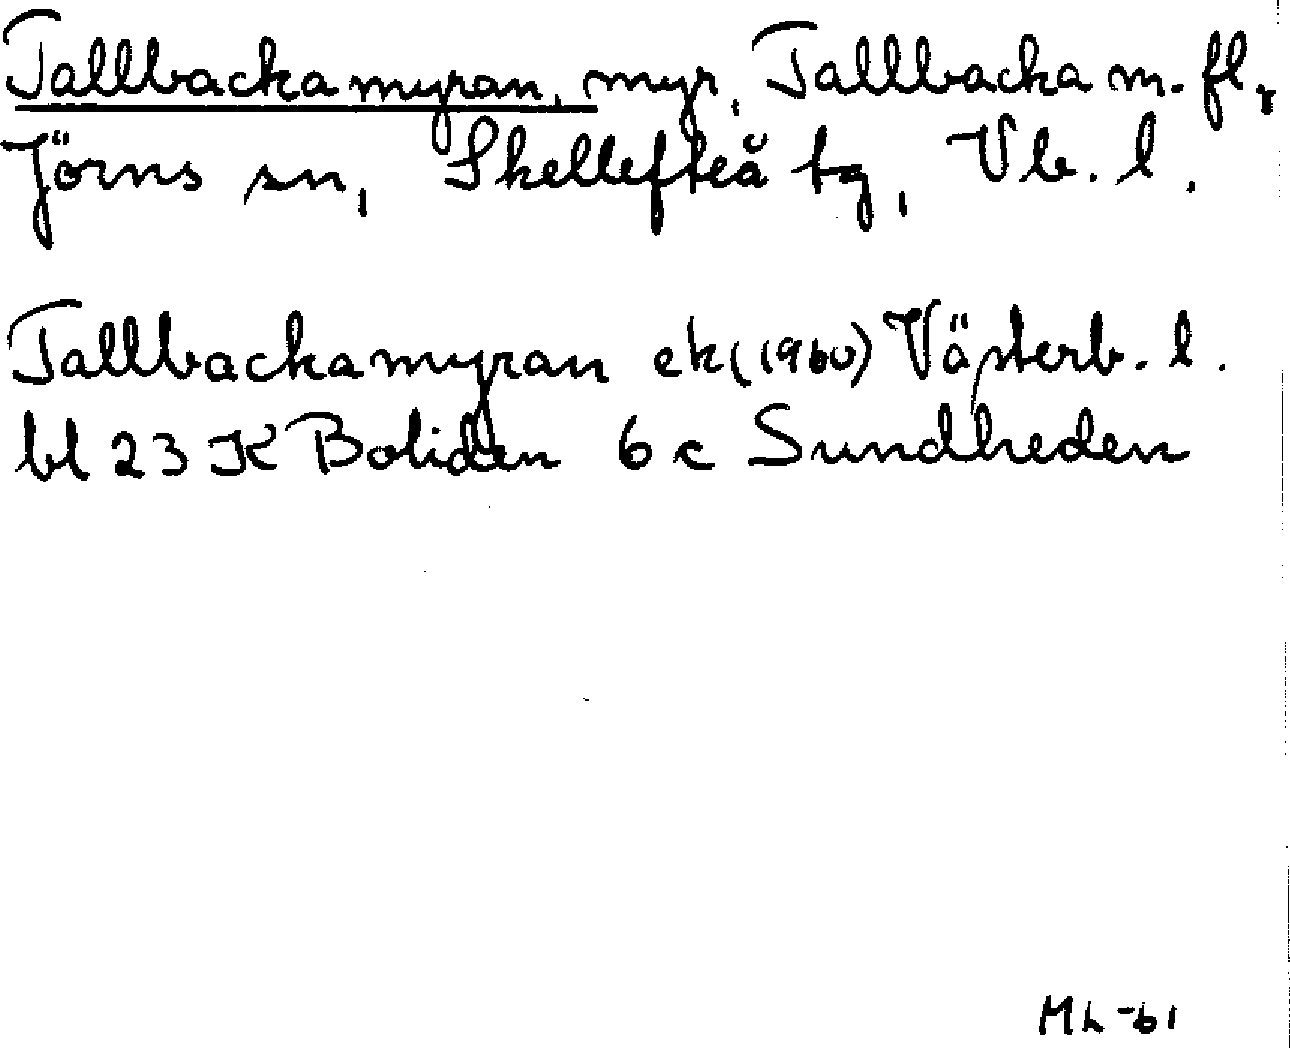 Tallbackamyran, myr, Tallbacka m. fl.,
Jörns sn, Skellefteå tg, Vb. l.
Tallbackamyran ek (1960) Västerb. l.
bl 23 K Boliden 6 c Sundheden
ML -61